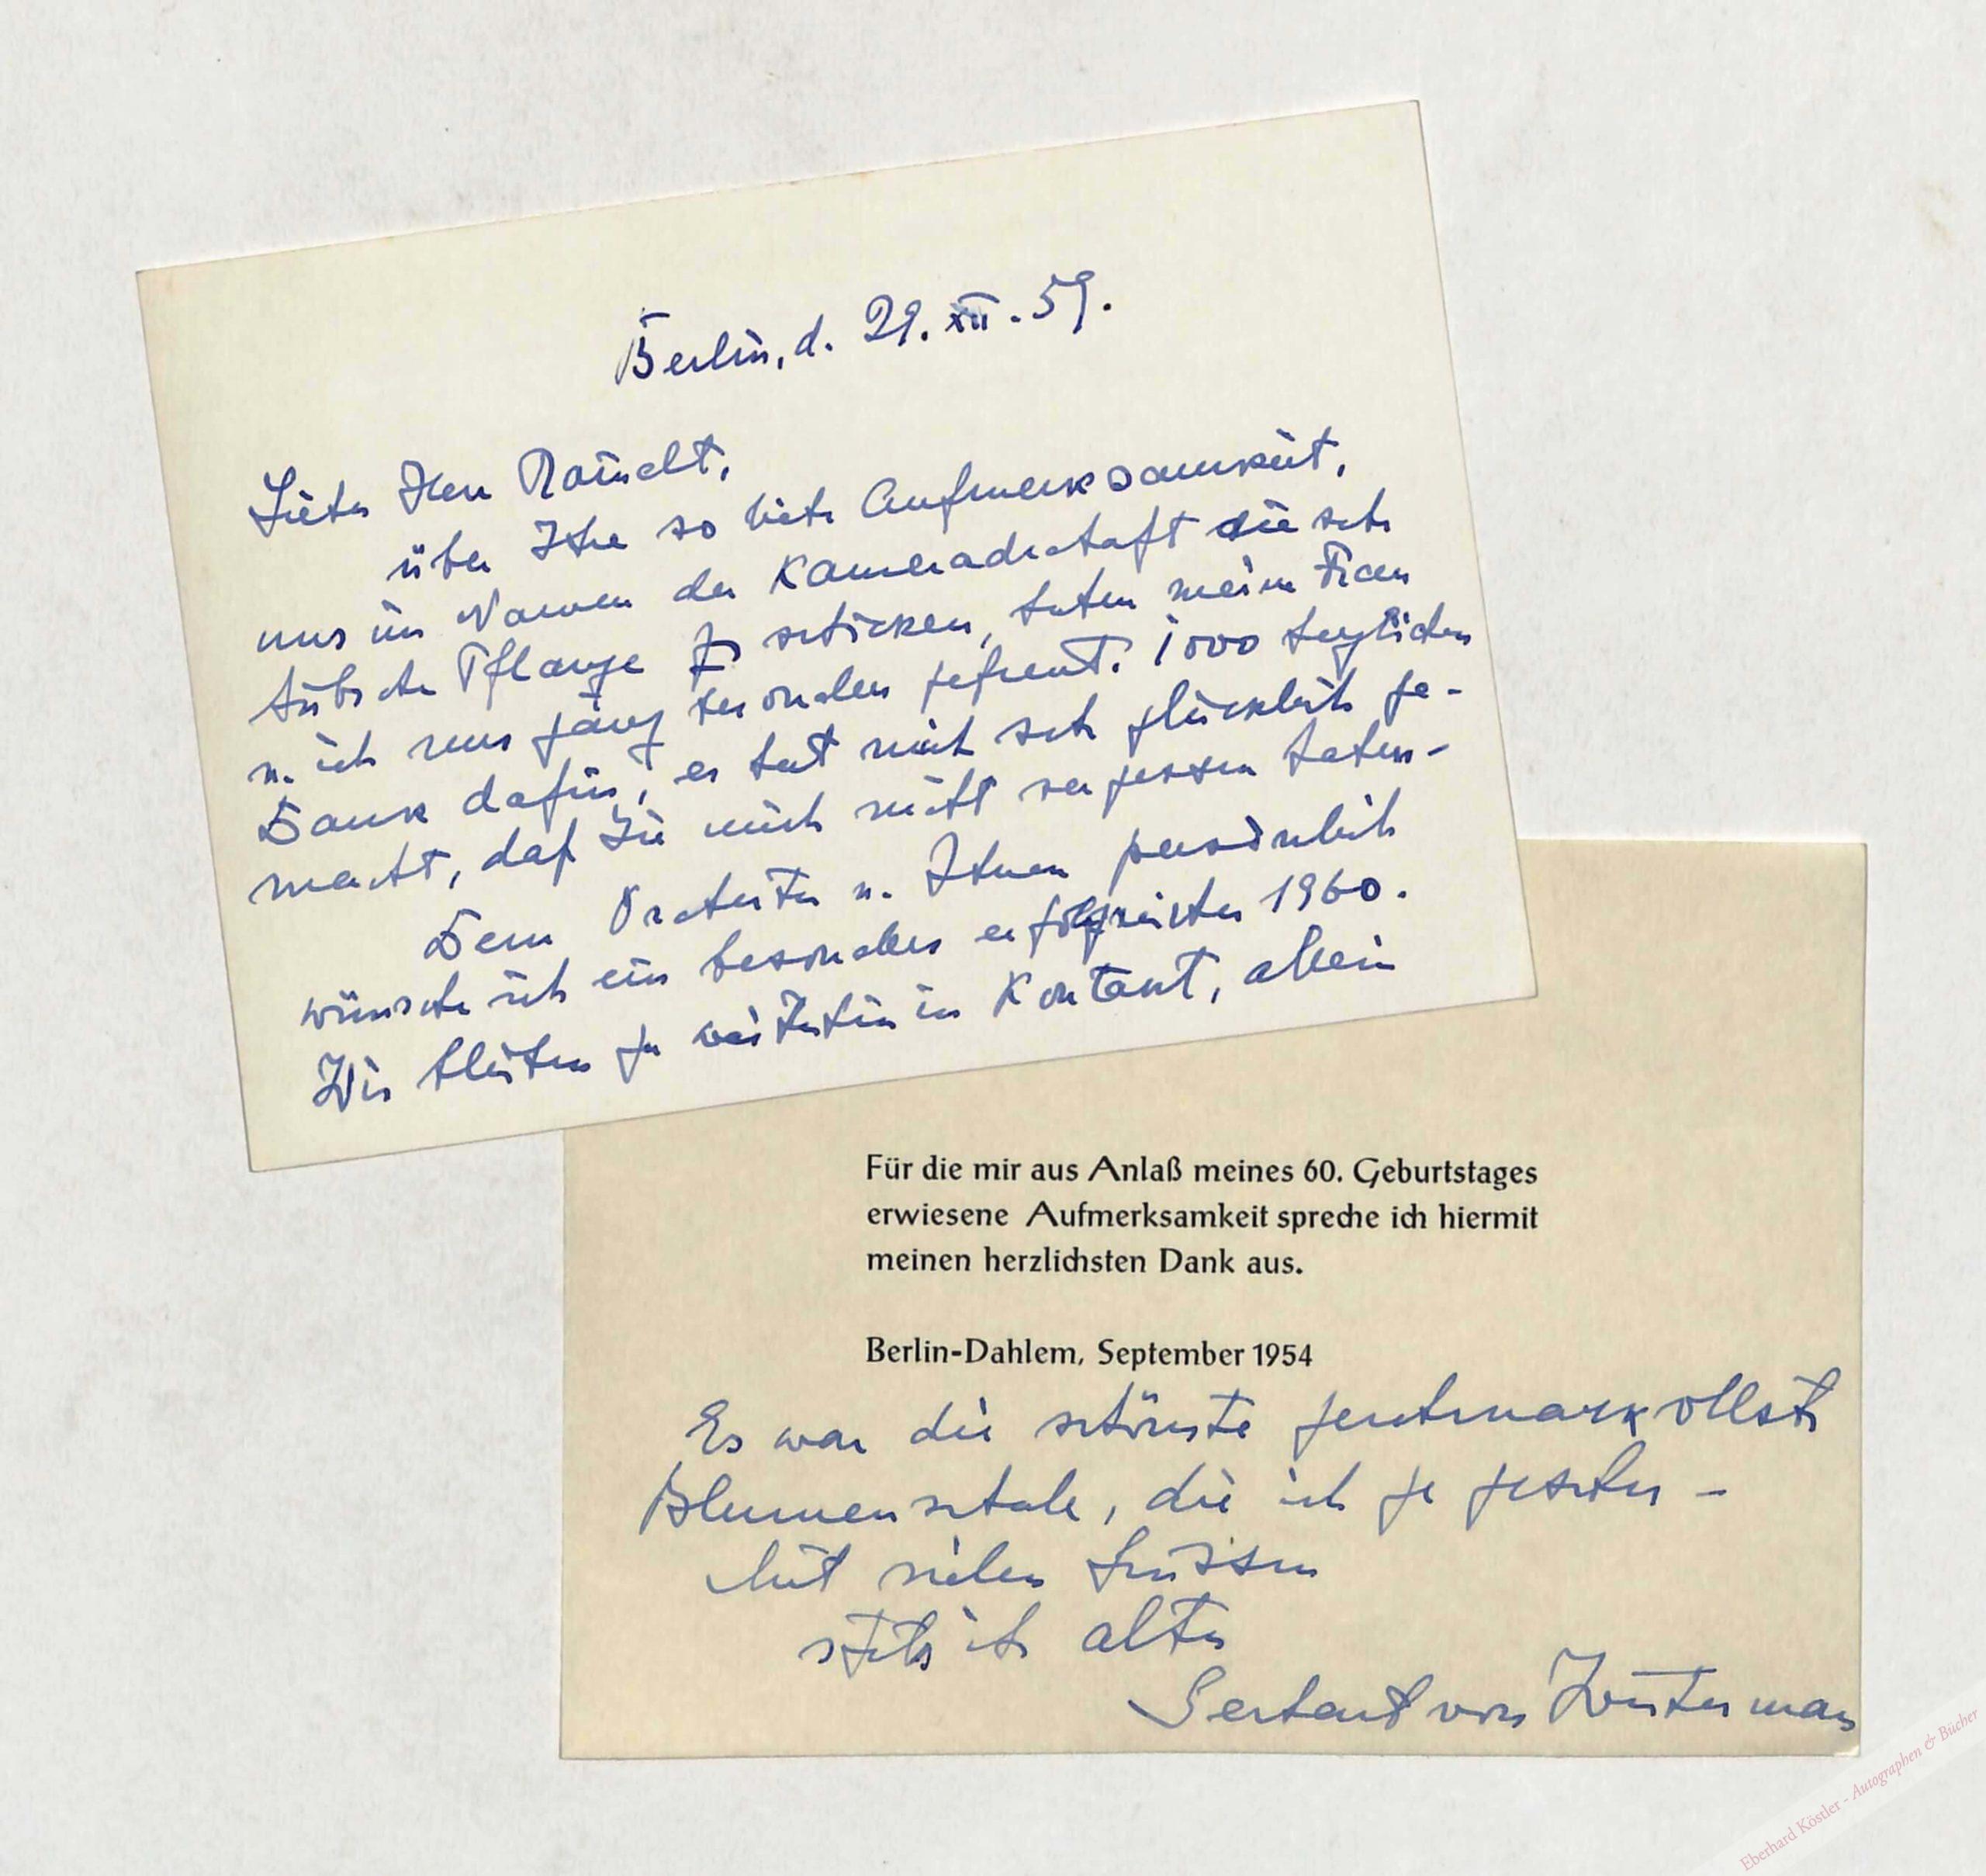 Berlin, d. 29. XII. 59.
Lieber Herr
über Ihre so liebe Aufmerksamkeit,
uns im Namen der Kameradschaft die sehr
hübsche Pflanze zu schicken, haben meine Frau
u. ich uns ganz besonders gefreut. 1000 herzlichen
Dank dafür, es hat mich sehr glücklich ge-
macht, daß Sie mich nicht vergessen haben –
Dem Orchester u. Ihnen persönlich
wünsche ich ein besonders erfolgreiches 1960.
Wir bleiben ja weiterhin in Kontakt, allein
Für die mir aus Anlaß meines 60. Geburtstages
erwiesene Aufmerksamkeit spreche ich hiermit
meinen herzlichsten Dank aus.
Berlin-Dahlem, September 1954
Es war die schönste geschmackvollste
Blumenschale, die ich je gesehen –
Mit vielen Grüssen
stets Ihr alter
Gerhart von Westerman
Eberhard Köstler - Autographen & Bücher